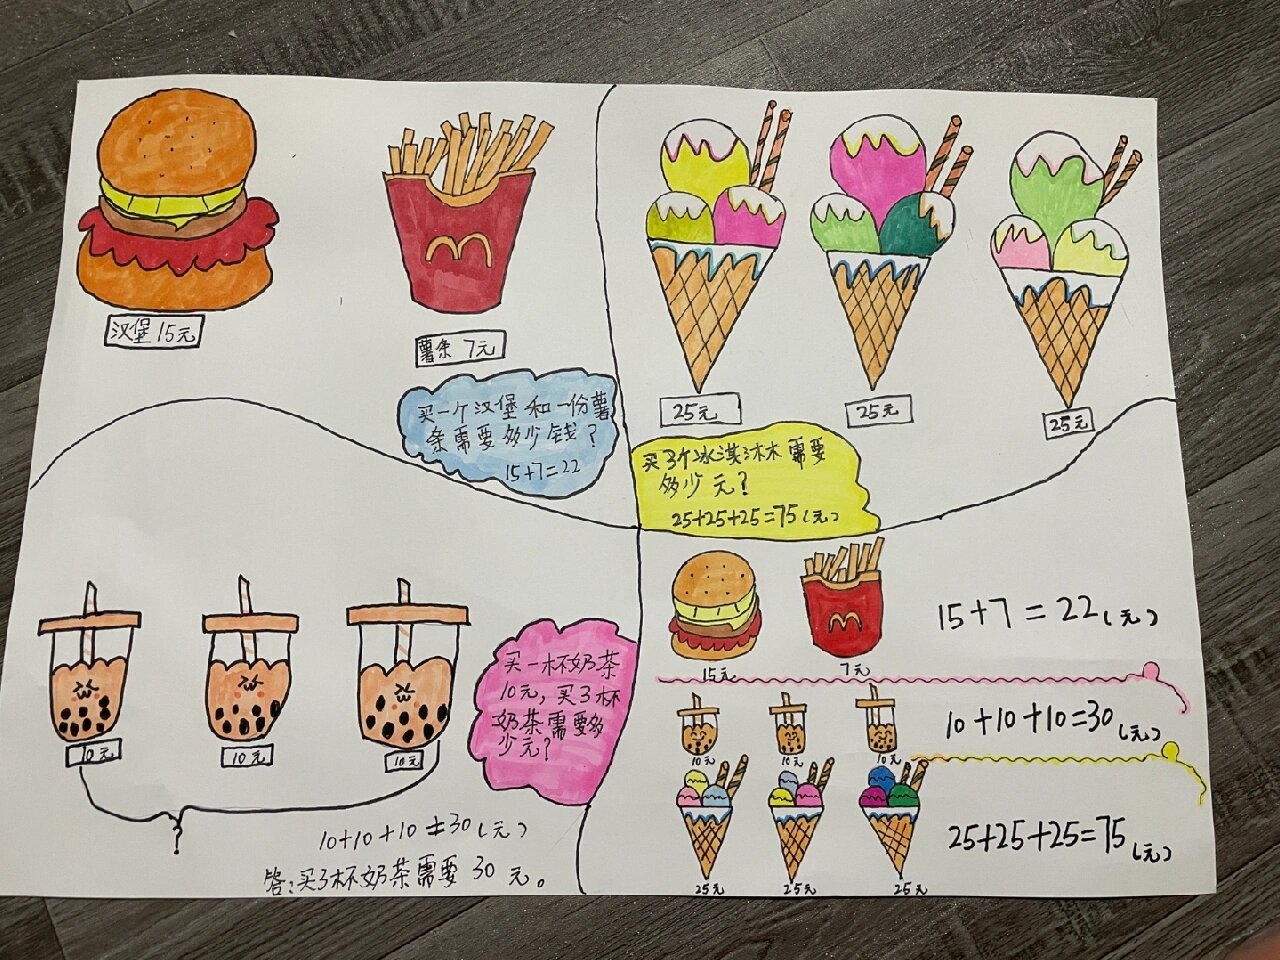 汉堡 15元
薯条 7元
买一个汉堡和一份薯
条需要多少钱？
15+7=22
25元
25元
25元
买3个冰淇淋 需要
多少元？
25+25+25=75(元)
10元
10元
10元
买一杯奶茶
10元，买3杯
奶茶需要多
少元？
10+10+10=30(元)
答：买3杯奶茶需要 30 元。
15元
7元
15+7=22(元)
10元
10元
10元
10+10+10=30(元)
25元
25元
25元
25+25+25=75(元)